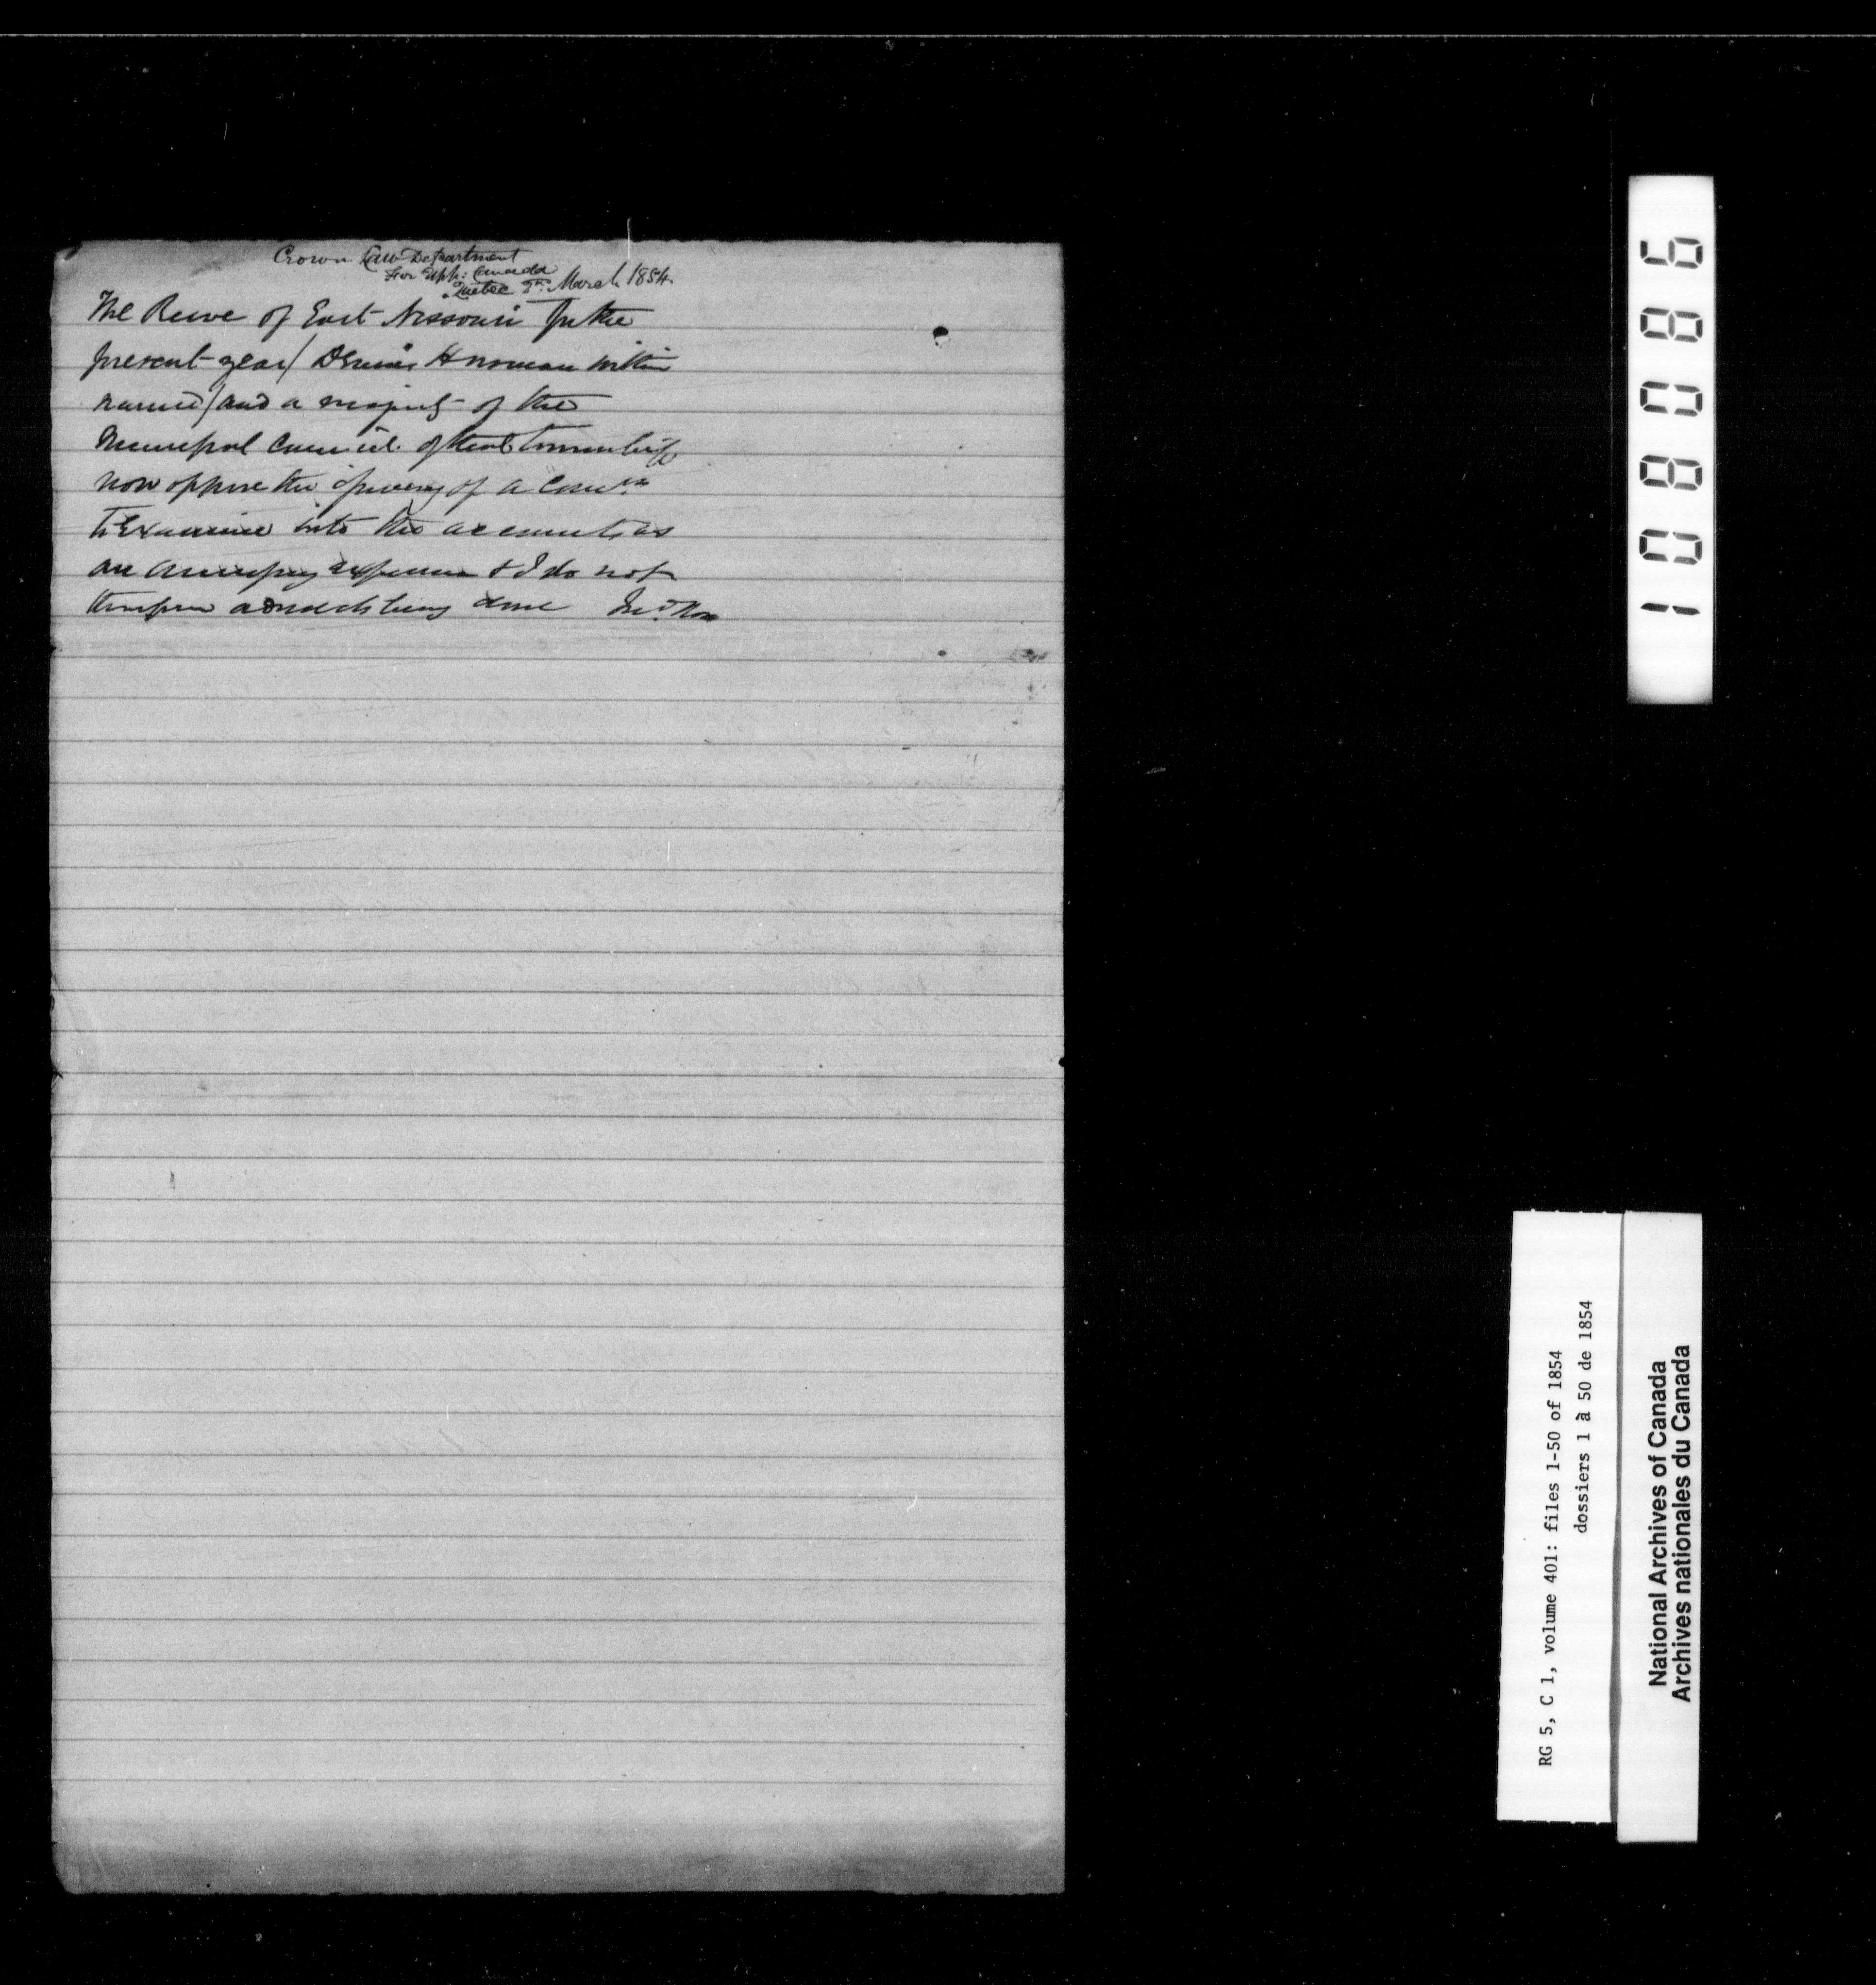 Crown Law Department
For Upp: Canada
Quebec 2nd March 1854.
The Reeve of East Nissouri for the
present year / Dennis within
named / and a majority of the
Municipal Council of that Township
now oppose the issuing of a Comn
to Examine into the accounts as
an expense & I do not
therefore advise its being done Jno. Ross
108086
RG 5, C 1, volume 401: files 1-50 of 1854
dossiers 1 à 50 de 1854
National Archives of Canada
Archives nationales du Canada